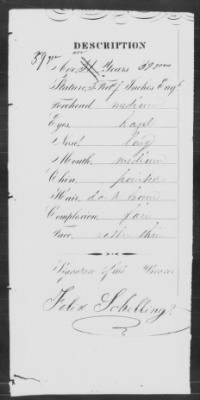 DESCRIPTION
39 yrs
Age, Years 39 years
Stature, 5 Feet 7 Inches Engh
Forehead medium
Eyes hazel
Nose long
Mouth medium
Chin pointed
Hair dark brown
Complexion fair
Face rather thin
Signature of the
Felix Schelling